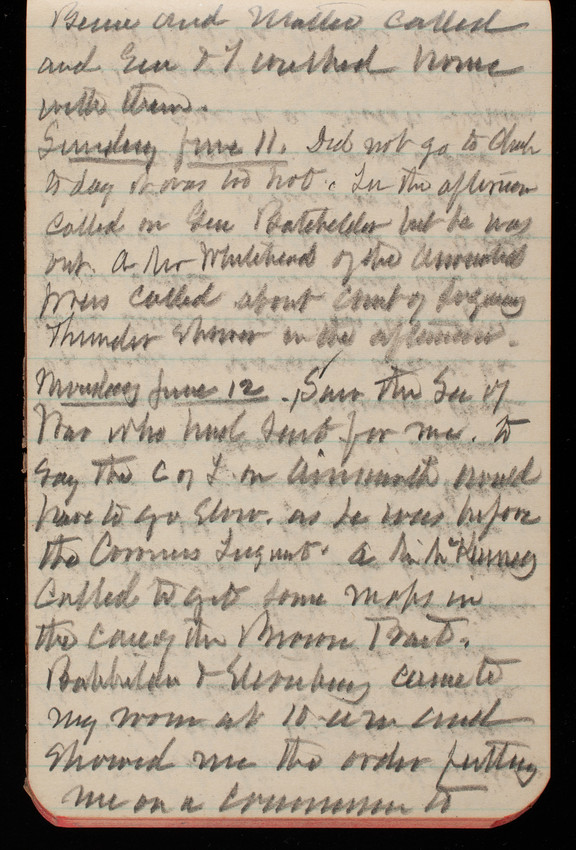 and Mattie called
and Gen & I walked home
with them.
Sunday June 11. Did not go to Church
to day it was too hot. In the afternoon
called on Gen Batchelder but he was
out. A Mr Whitehead of the Associated
Press called about Court of Inquiry
Thunder shower in the afternoon.
Monday June 12. Saw the Sec of
War who had sent for me. to
say the C of I. on Ainsworth would
have to go slow. as he was before
the Coroners Inquest. A Mr McKinney
called to get some maps in
the case of the Brown Tract.
& came to
my room at 10 a.m and
showed me the order putting
me on a commission to